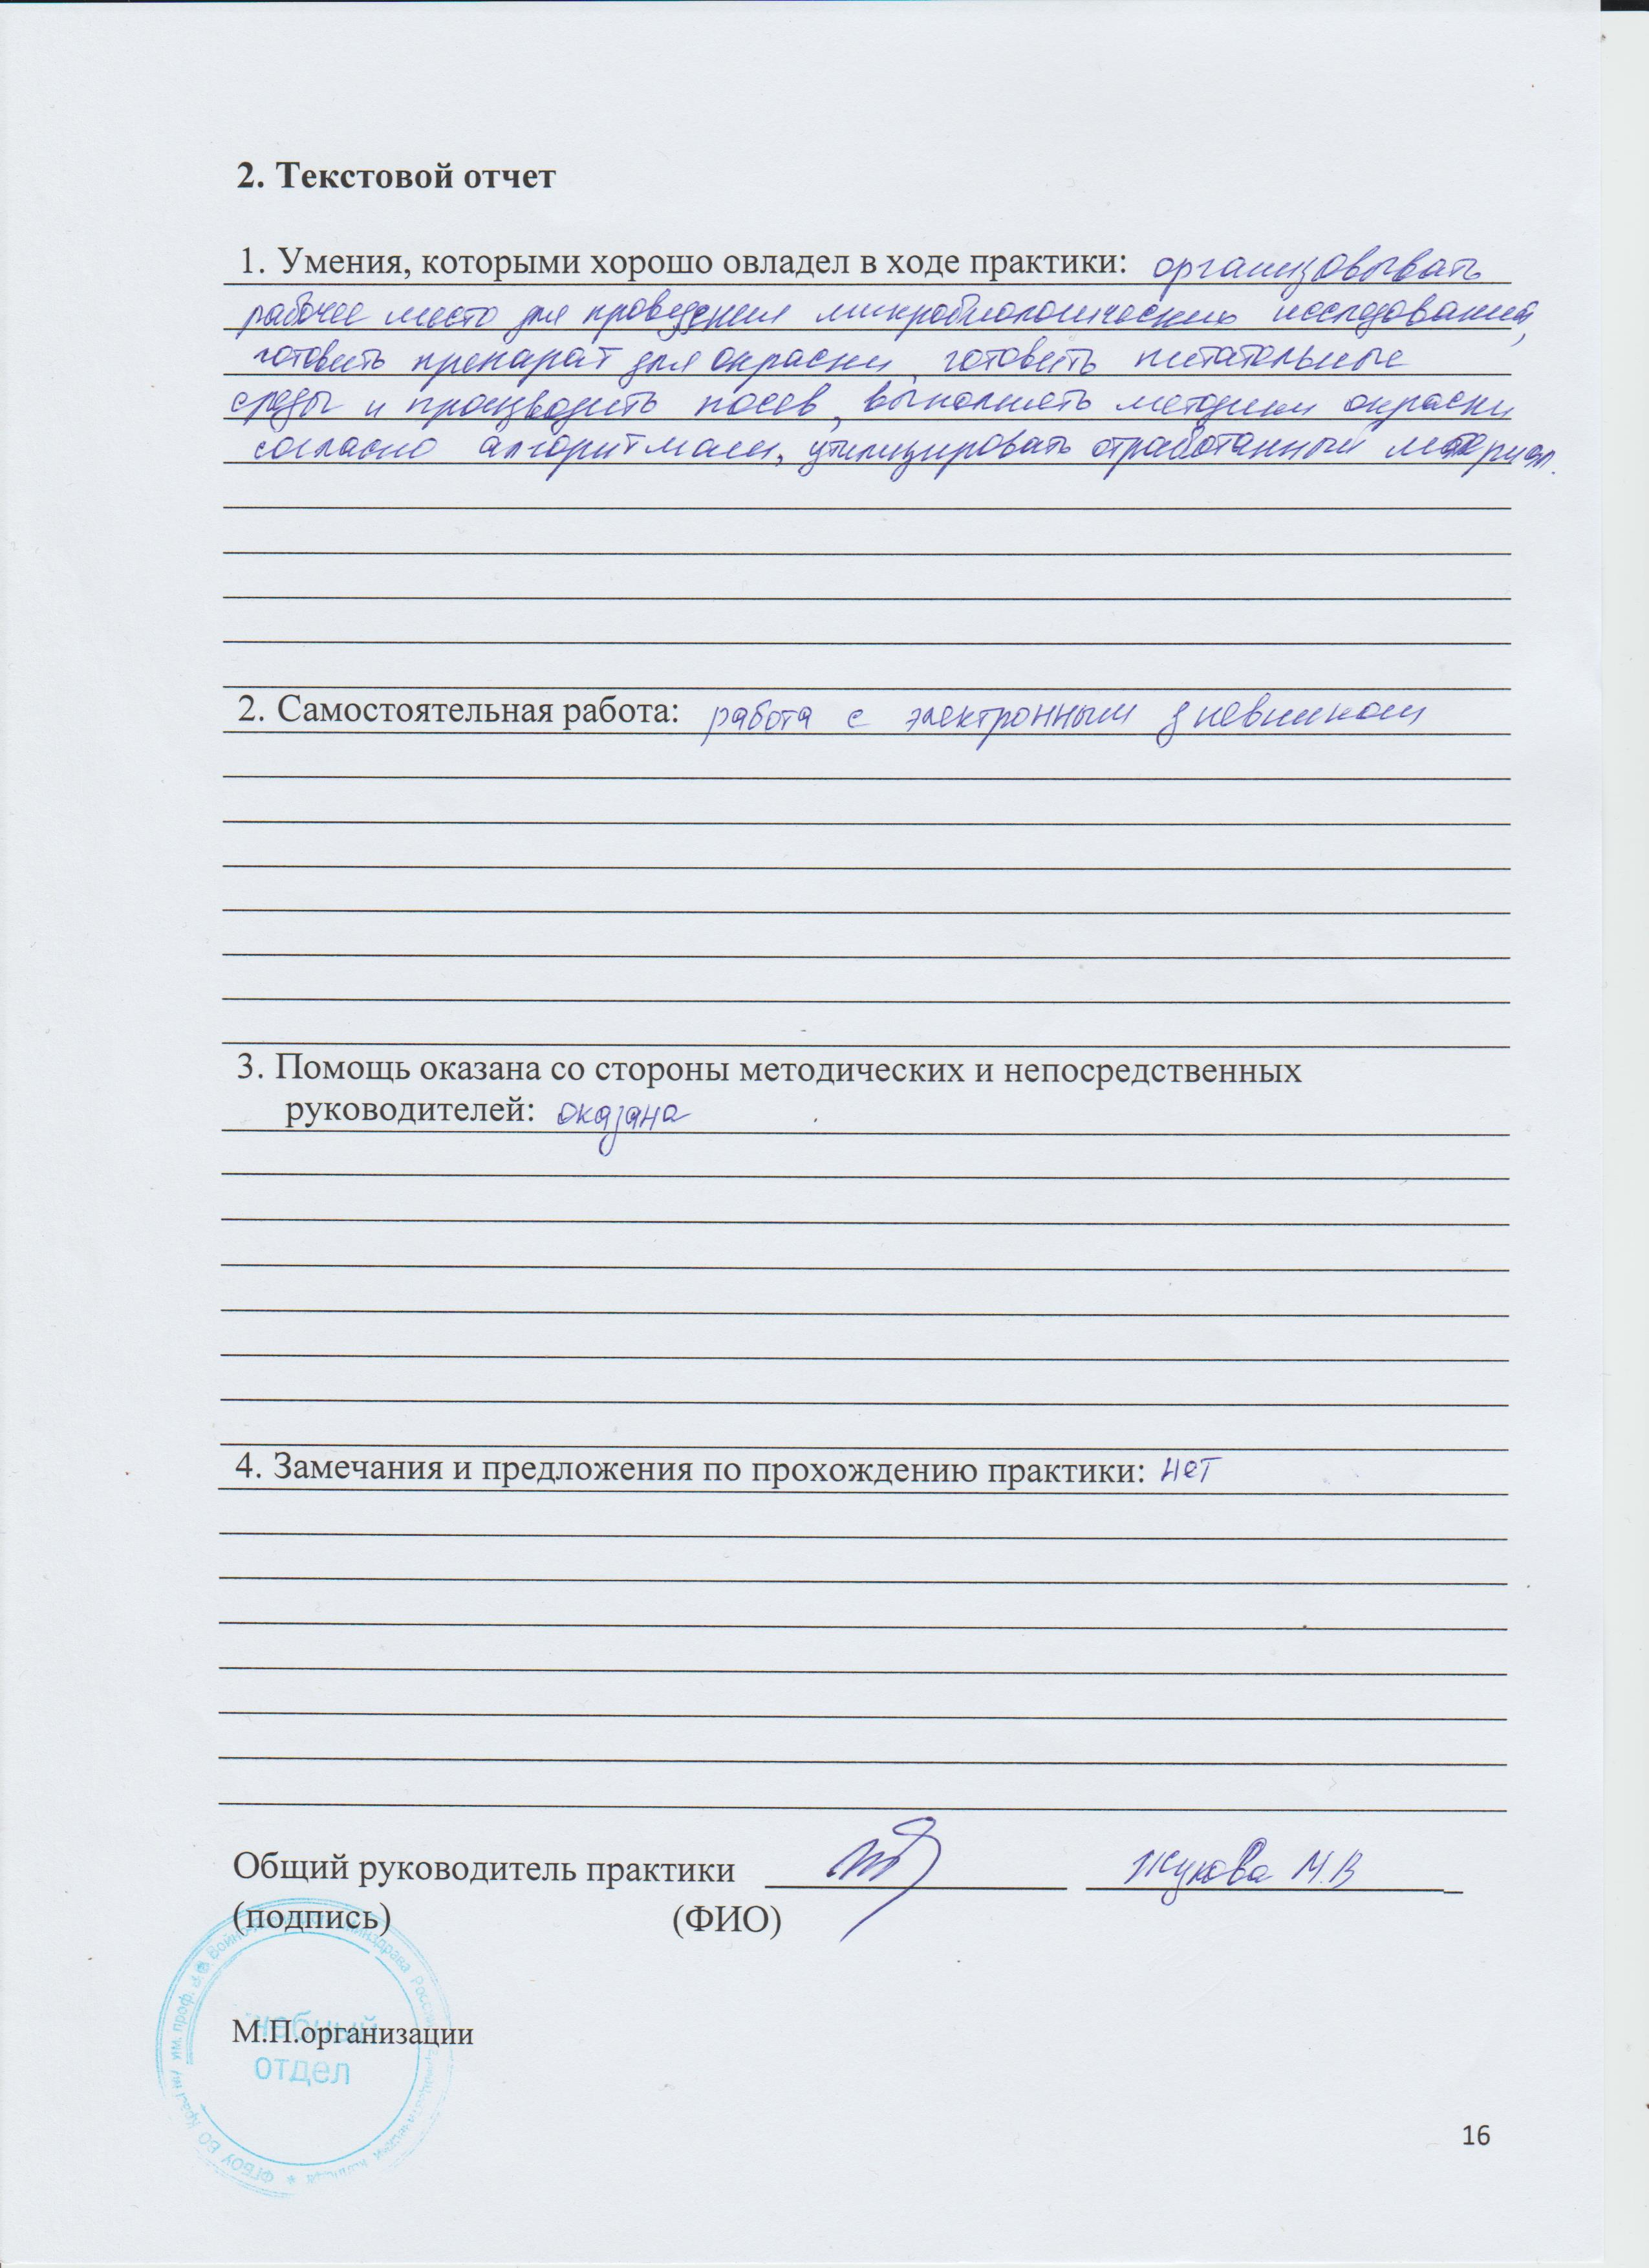 2. Текстовой отчет
1. Умения, которыми хорошо овладел в ходе практики: организовывать
рабочее место для проведения микробиологических исследований,
готовить препарат для окраски, готовить питательные
среды и производить посев, выполнять методики окраски
согласно алгоритмам, утилизировать отработанный материал.
2. Самостоятельная работа: работа с электронным дневником
3. Помощь оказана со стороны методических и непосредственных
руководителей: оказана
4. Замечания и предложения по прохождению практики: нет
Общий руководитель практики Жукова М.В
(подпись) (ФИО)
М.П.организации
отдел
ФГБОУ ВО им. проф. Минздрава
16